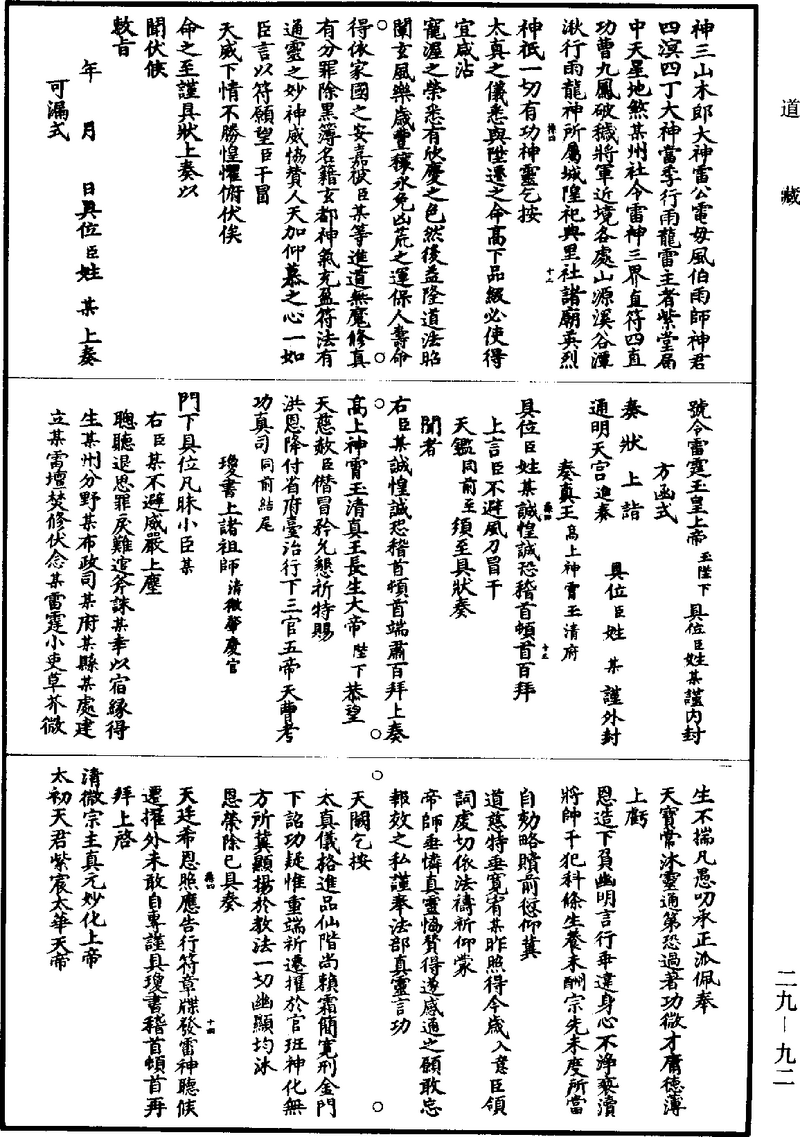 道藏
神三山木郎大神雷公電母風伯雨師神君
四溟四丁大神當季行雨龍雷主者紫堂屬
中天星地煞某州社令雷神三界直符四直
功曹九鳳破穢將軍近境各處山源溪谷潭
湫行雨龍神所屬城隍祀典里社諸廟英烈
神祇一切有功神靈乞按
太真之儀悉與陞遷之命高下品級必使得
宜咸沾
寵渥之榮悉有欣慶之色然後益隆道法昭
闡玄風樂歲豐穰永免凶荒之運保人壽命
得依家國之安嘉彼臣某等進道無魔修真
有分罪除黑簿名籍玄都神氣充盈符法有
通靈之妙神威協贊人天加仰慕之心一如
臣言以符願望臣干冒
天威下情不勝惶懼俯伏俟
命之至謹具狀上奏以
聞伏候
敕旨
年 月 日具位臣姓某上奏
可漏式
號令雷霆玉皇上帝玉陛下 具位臣姓某謹內封
方函式
奏狀上詣 具位臣姓某謹外封
通明天宮進奏
奏真王高上神霄玉清府
具位臣姓某誠惶誠恐稽首頓首百拜
上言臣不避風刀冒干
天鑑同前至須至具狀奏
聞者
右臣某誠惶誠恐稽首頓首端肅百拜上奏
高上神霄玉清真王長生大帝陛下恭望
天慈赦臣僭冒矜允懇祈特賜
洪恩降付省府臺治行下三官五帝天曹考
功真司同前結尾
瓊書上諸祖師清微肇慶宮
門下具位凡昧小臣某
右臣某不避威嚴上塵
聰聽退思罪戾難逭斧誅某幸以宿緣得
生某州分野某布政司某府某縣某處建
立某雷壇焚修伏念某雷霆小吏草芥微
生不揣凡愚叨承正派佩奉
天寶常沐靈通第恐過著功微才庸德薄
上虧
恩造下負幽明言行乖違身心不淨褻瀆
將帥干犯科條生養未酬宗先未度所當
自劾略贖前愆仰冀
道慈特垂寬宥某昨照得今歲入意臣領
詞虔切依法禱祈仰蒙
帝師垂憐真靈協贊得遂感通之願敢忘
報效之私謹奉法部真靈言功
天闕乞按
太真儀格進品仙階尚賴霜簡寬刑金門
下詔功疑惟重端祈遷擢於官班神化無
方所冀顯揚於教法一切幽顯均沐
恩榮除已具奏
天廷希恩照應告行符章牒發雷神聽候
遷擢外未敢自專謹具瓊書稽首頓首再
拜上啓
清微宗主真元妙化上帝
太初天君紫宸太華天帝
二九-九二